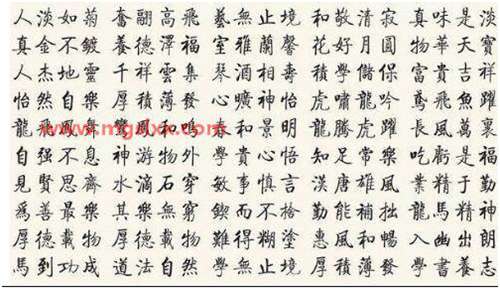 人淡如菊 奮翮高飛 藝無止境 和敬清寂 真味是淡
真金不鍍 養德澤福 室雅蘭馨 花好月圓 物華天寶
人杰地靈 千祥雲集 琴酒相壽 積學儲保 富貴吉祥
怡然自樂 厚積薄發 心曠神怡 虎嘯龍吟 鳶飛魚躍
龍飛鳳舞 鳳和鳴 春和景明 龍騰虎躍 長風萬裏
自强不息 神游物外 學貴心悟 知足常樂 吃虧是福
見賢思齊 水滴石穿 敏事慎言 漢唐雄風 業精于勤
爲善最樂 其樂無窮 鍥而不捨 勤能補拙 龍馬精神
厚德載物 厚德載物 難得糊塗 惠風和暢 入幽出朗
馬到功成 道法自然 學無止境 厚積薄發 學書養志